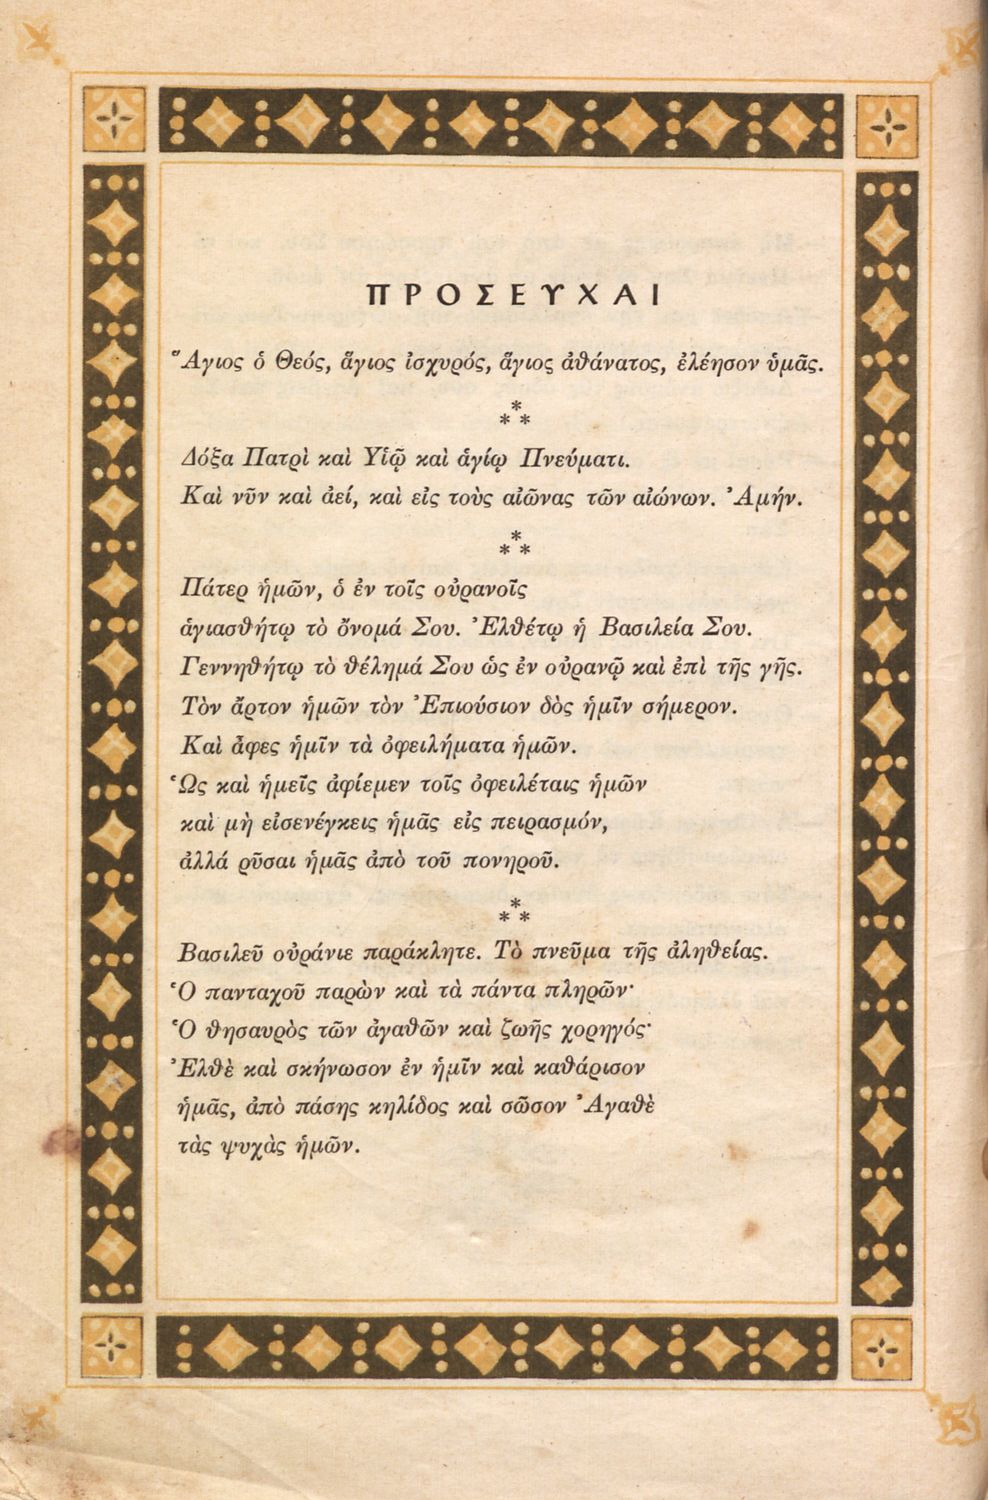 ΠΡΟΣΕΥΧΑΙ
Ἅγιος ὁ Θεός, ἅγιος ἰσχυρός, ἅγιος ἀθάνατος, ἐλέησον ὑμᾶς.
***
Δόξα Πατρὶ καὶ Υἱῷ καὶ ἁγίῳ Πνεύματι.
Καὶ νῦν καὶ ἀεί, καὶ εἰς τοὺς αἰῶνας τῶν αἰώνων. Ἀμήν.
***
Πάτερ ἡμῶν, ὁ ἐν τοῖς οὐρανοῖς
ἁγιασθήτῳ τὸ ὄνομά Σου. Ἐλθέτῳ ἡ Βασιλεία Σου.
Γεννηθήτῳ τὸ θέλημά Σου ὡς ἐν οὐρανῷ καὶ ἐπὶ τῆς γῆς.
Τὸν ἄρτον ἡμῶν τὸν Ἐπιούσιον δὸς ἡμῖν σήμερον.
Καὶ ἄφες ἡμῖν τὰ ὀφειλήματα ἡμῶν.
Ὡς καὶ ἡμεῖς ἀφίεμεν τοῖς ὀφειλέταις ἡμῶν
καὶ μὴ εἰσενέγκεις ἡμᾶς εἰς πειρασμόν,
ἀλλά ρῦσαι ἡμᾶς ἀπὸ τοῦ πονηροῦ.
***
Βασιλεῦ οὐράνιε παράκλητε. Τὸ πνεῦμα τῆς ἀληθείας.
Ὁ πανταχοῦ παρὼν καὶ τὰ πάντα πληρῶν·
Ὁ θησαυρὸς τῶν ἀγαθῶν καὶ ζωῆς χορηγός·
Ἐλθὲ καὶ σκήνωσον ἐν ἡμῖν καὶ καθάρισον
ἡμᾶς, ἀπὸ πάσης κηλίδος καὶ σῶσον Ἀγαθὲ
τὰς ψυχὰς ἡμῶν.